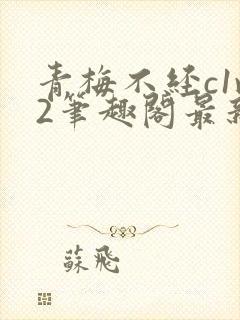 青梅不经c1v
2筆趣阁最新
蘇飛